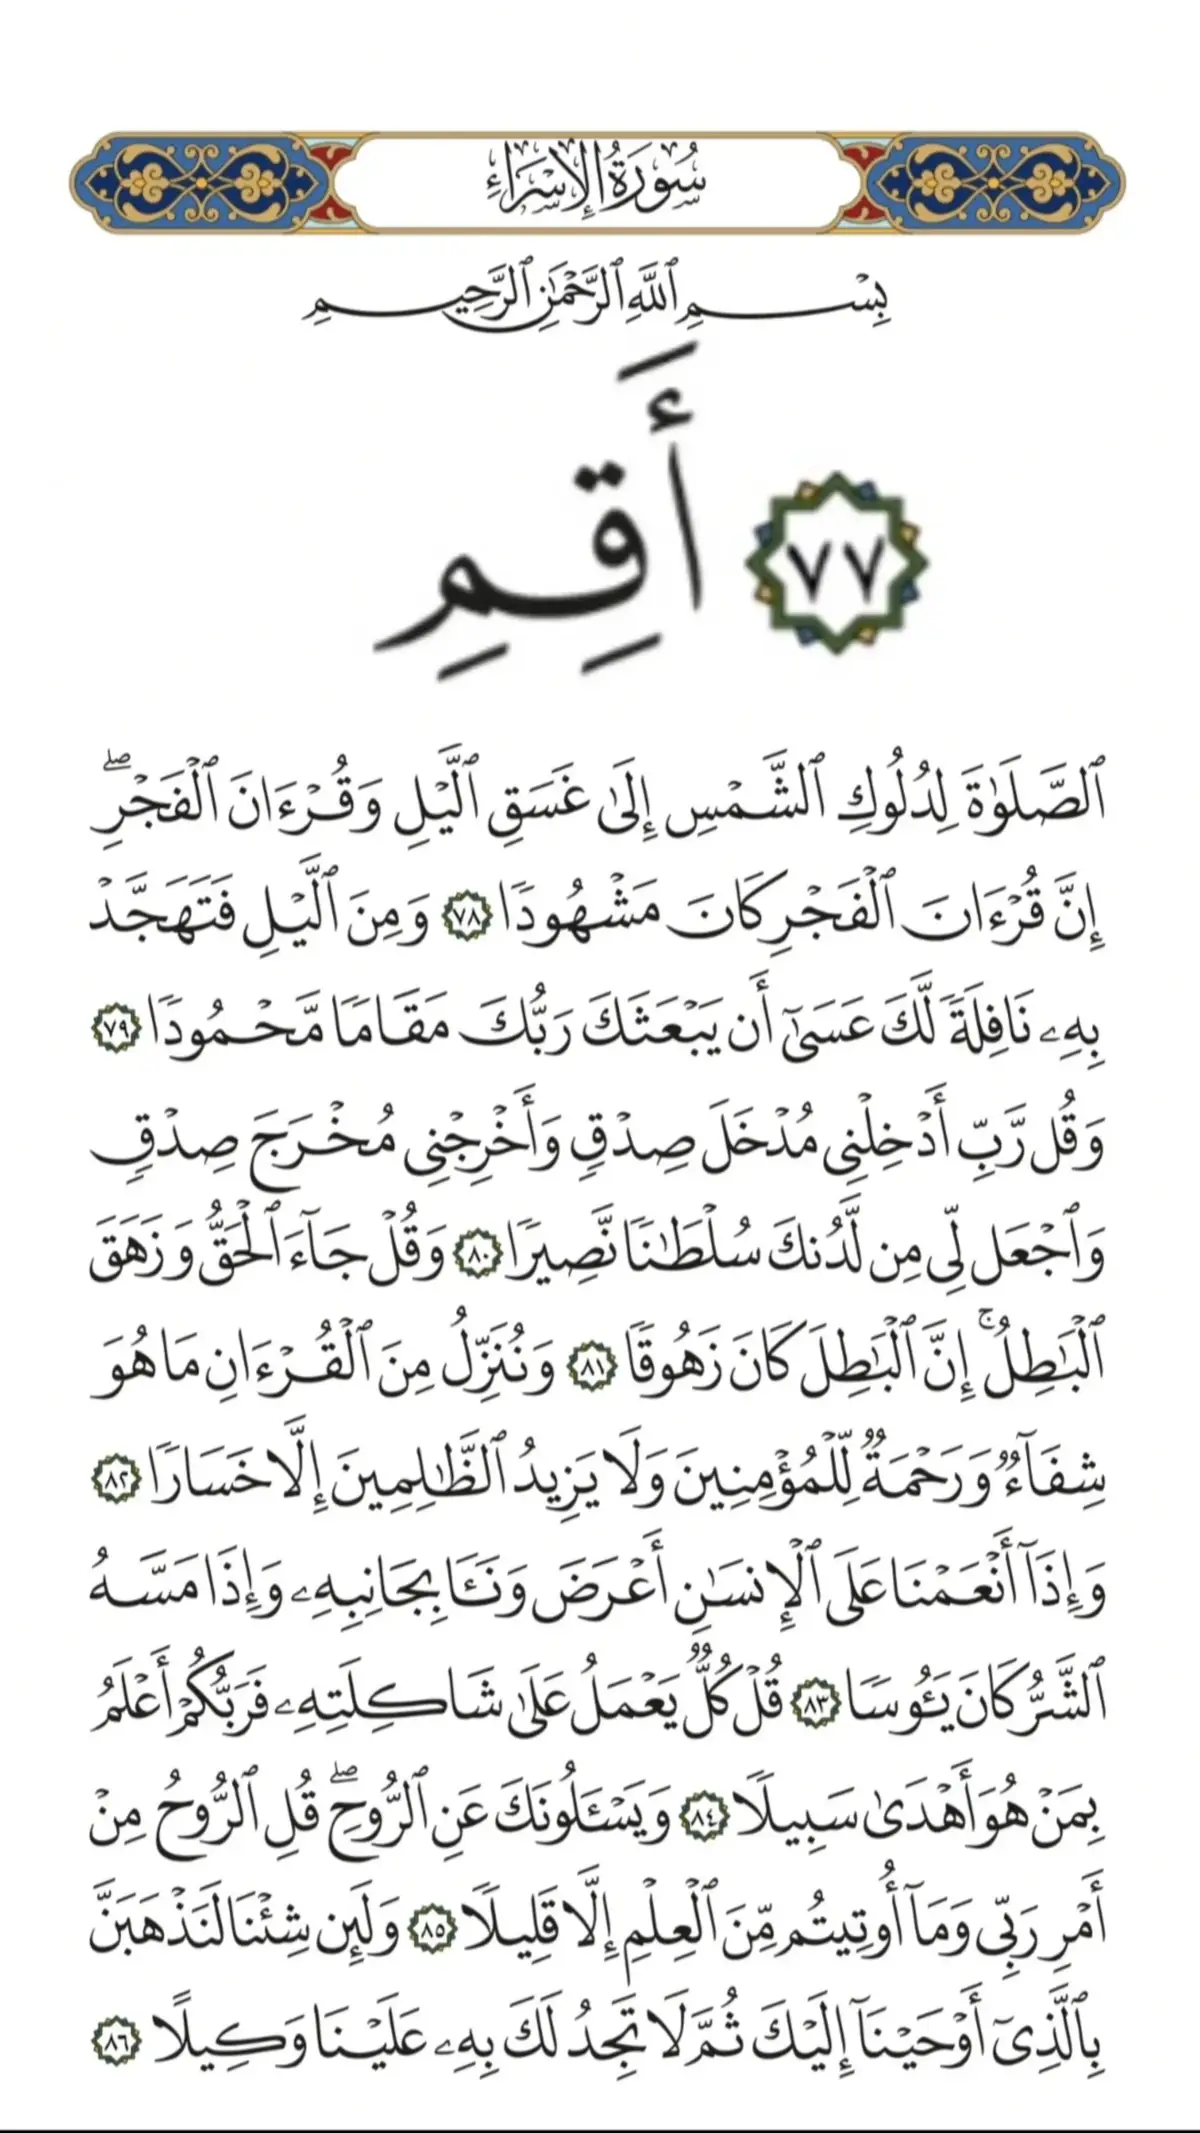 سُورَةُ الإِسْرَاءِ
بِسْمِ ٱللَّهِ ٱلرَّحْمَٰنِ ٱلرَّحِيمِ
٧٧ أَقِمِ
ٱلصَّلَوٰةَ لِدُلُوكِ ٱلشَّمْسِ إِلَىٰ غَسَقِ ٱلَّيْلِ وَقُرْءَانَ ٱلْفَجْرِ ۖ
إِنَّ قُرْءَانَ ٱلْفَجْرِ كَانَ مَشْهُودًا ٧٨ وَمِنَ ٱلَّيْلِ فَتَهَجَّدْ
بِهِۦ نَافِلَةً لَّكَ عَسَىٰٓ أَن يَبْعَثَكَ رَبُّكَ مَقَامًا مَّحْمُودًا ٧٩
وَقُل رَّبِّ أَدْخِلْنِى مُدْخَلَ صِدْقٍ وَأَخْرِجْنِى مُخْرَجَ صِدْقٍ
وَٱجْعَل لِّى مِن لَّدُنكَ سُلْطَٰنًا نَّصِيرًا ٨٠ وَقُلْ جَآءَ ٱلْحَقُّ وَزَهَقَ
ٱلْبَٰطِلُ ۚ إِنَّ ٱلْبَٰطِلَ كَانَ زَهُوقًا ٨١ وَنُنَزِّلُ مِنَ ٱلْقُرْءَانِ مَا هُوَ
شِفَآءٌ وَرَحْمَةٌ لِّلْمُؤْمِنِينَ وَلَا يَزِيدُ ٱلظَّٰلِمِينَ إِلَّا خَسَارًا ٨٢
وَإِذَآ أَنْعَمْنَا عَلَى ٱلْإِنسَٰنِ أَعْرَضَ وَنَـَٔا بِجَانِبِهِۦ وَإِذَا مَسَّهُ
ٱلشَّرُّ كَانَ يَـُٔوسًا ٨٣ قُلْ كُلٌّ يَعْمَلُ عَلَىٰ شَاكِلَتِهِۦ فَرَبُّكُمْ أَعْلَمُ
بِمَنْ هُوَ أَهْدَىٰ سَبِيلًا ٨٤ وَيَسْـَٔلُونَكَ عَنِ ٱلرُّوحِ ۖ قُلِ ٱلرُّوحُ مِنْ
أَمْرِ رَبِّى وَمَآ أُوتِيتُم مِّنَ ٱلْعِلْمِ إِلَّا قَلِيلًا ٨٥ وَلَئِن شِئْنَا لَنَذْهَبَنَّ
بِٱلَّذِىٓ أَوْحَيْنَآ إِلَيْكَ ثُمَّ لَا تَجِدُ لَكَ بِهِۦ عَلَيْنَا وَكِيلًا ٨٦